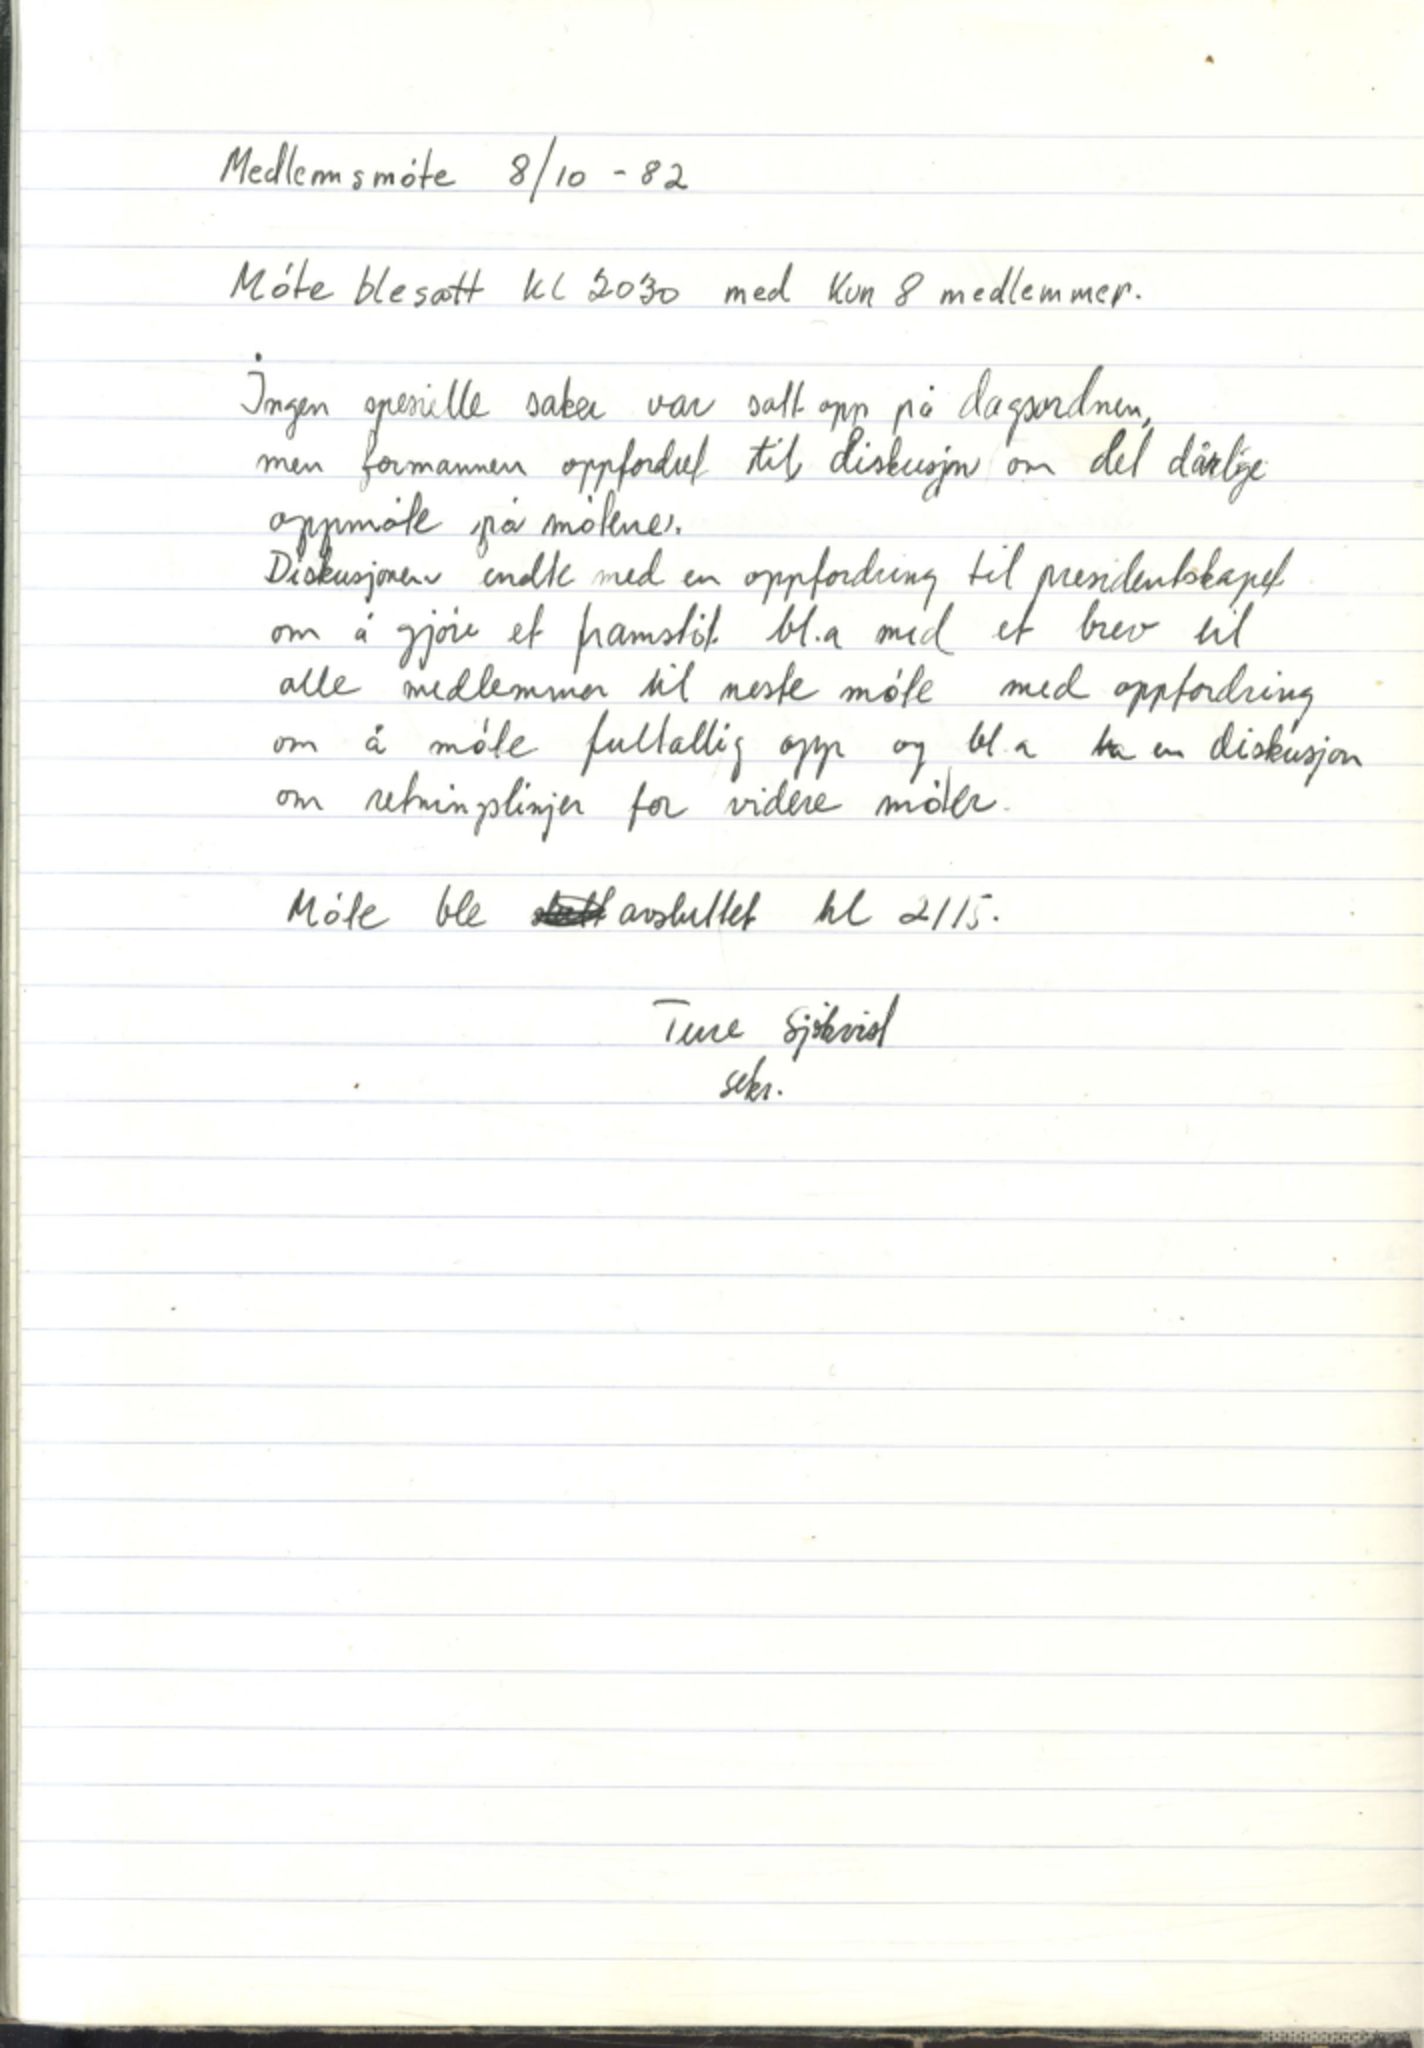 Medlemsmóte 8/10 - 82
Móte ble satt kl 2030 med kun 8 medlemmer.
Ingen spesielle saker var satt opp på dagsordnen,
men formannen oppfordret til diskusjon om det dårlige
oppmóte på mótene.
Diskusjonen endte med en oppfordring til presidentskapet
om å gjóre et framstót bl.a med et brev til
alle medlemmer til neste móte med oppfordring
om å móte fulltallig opp og bl.a ha en diskusjon
om retningslinjer for videre móter.
Móte ble avsluttet kl 2115.
Ture Sjökvist
sekr.